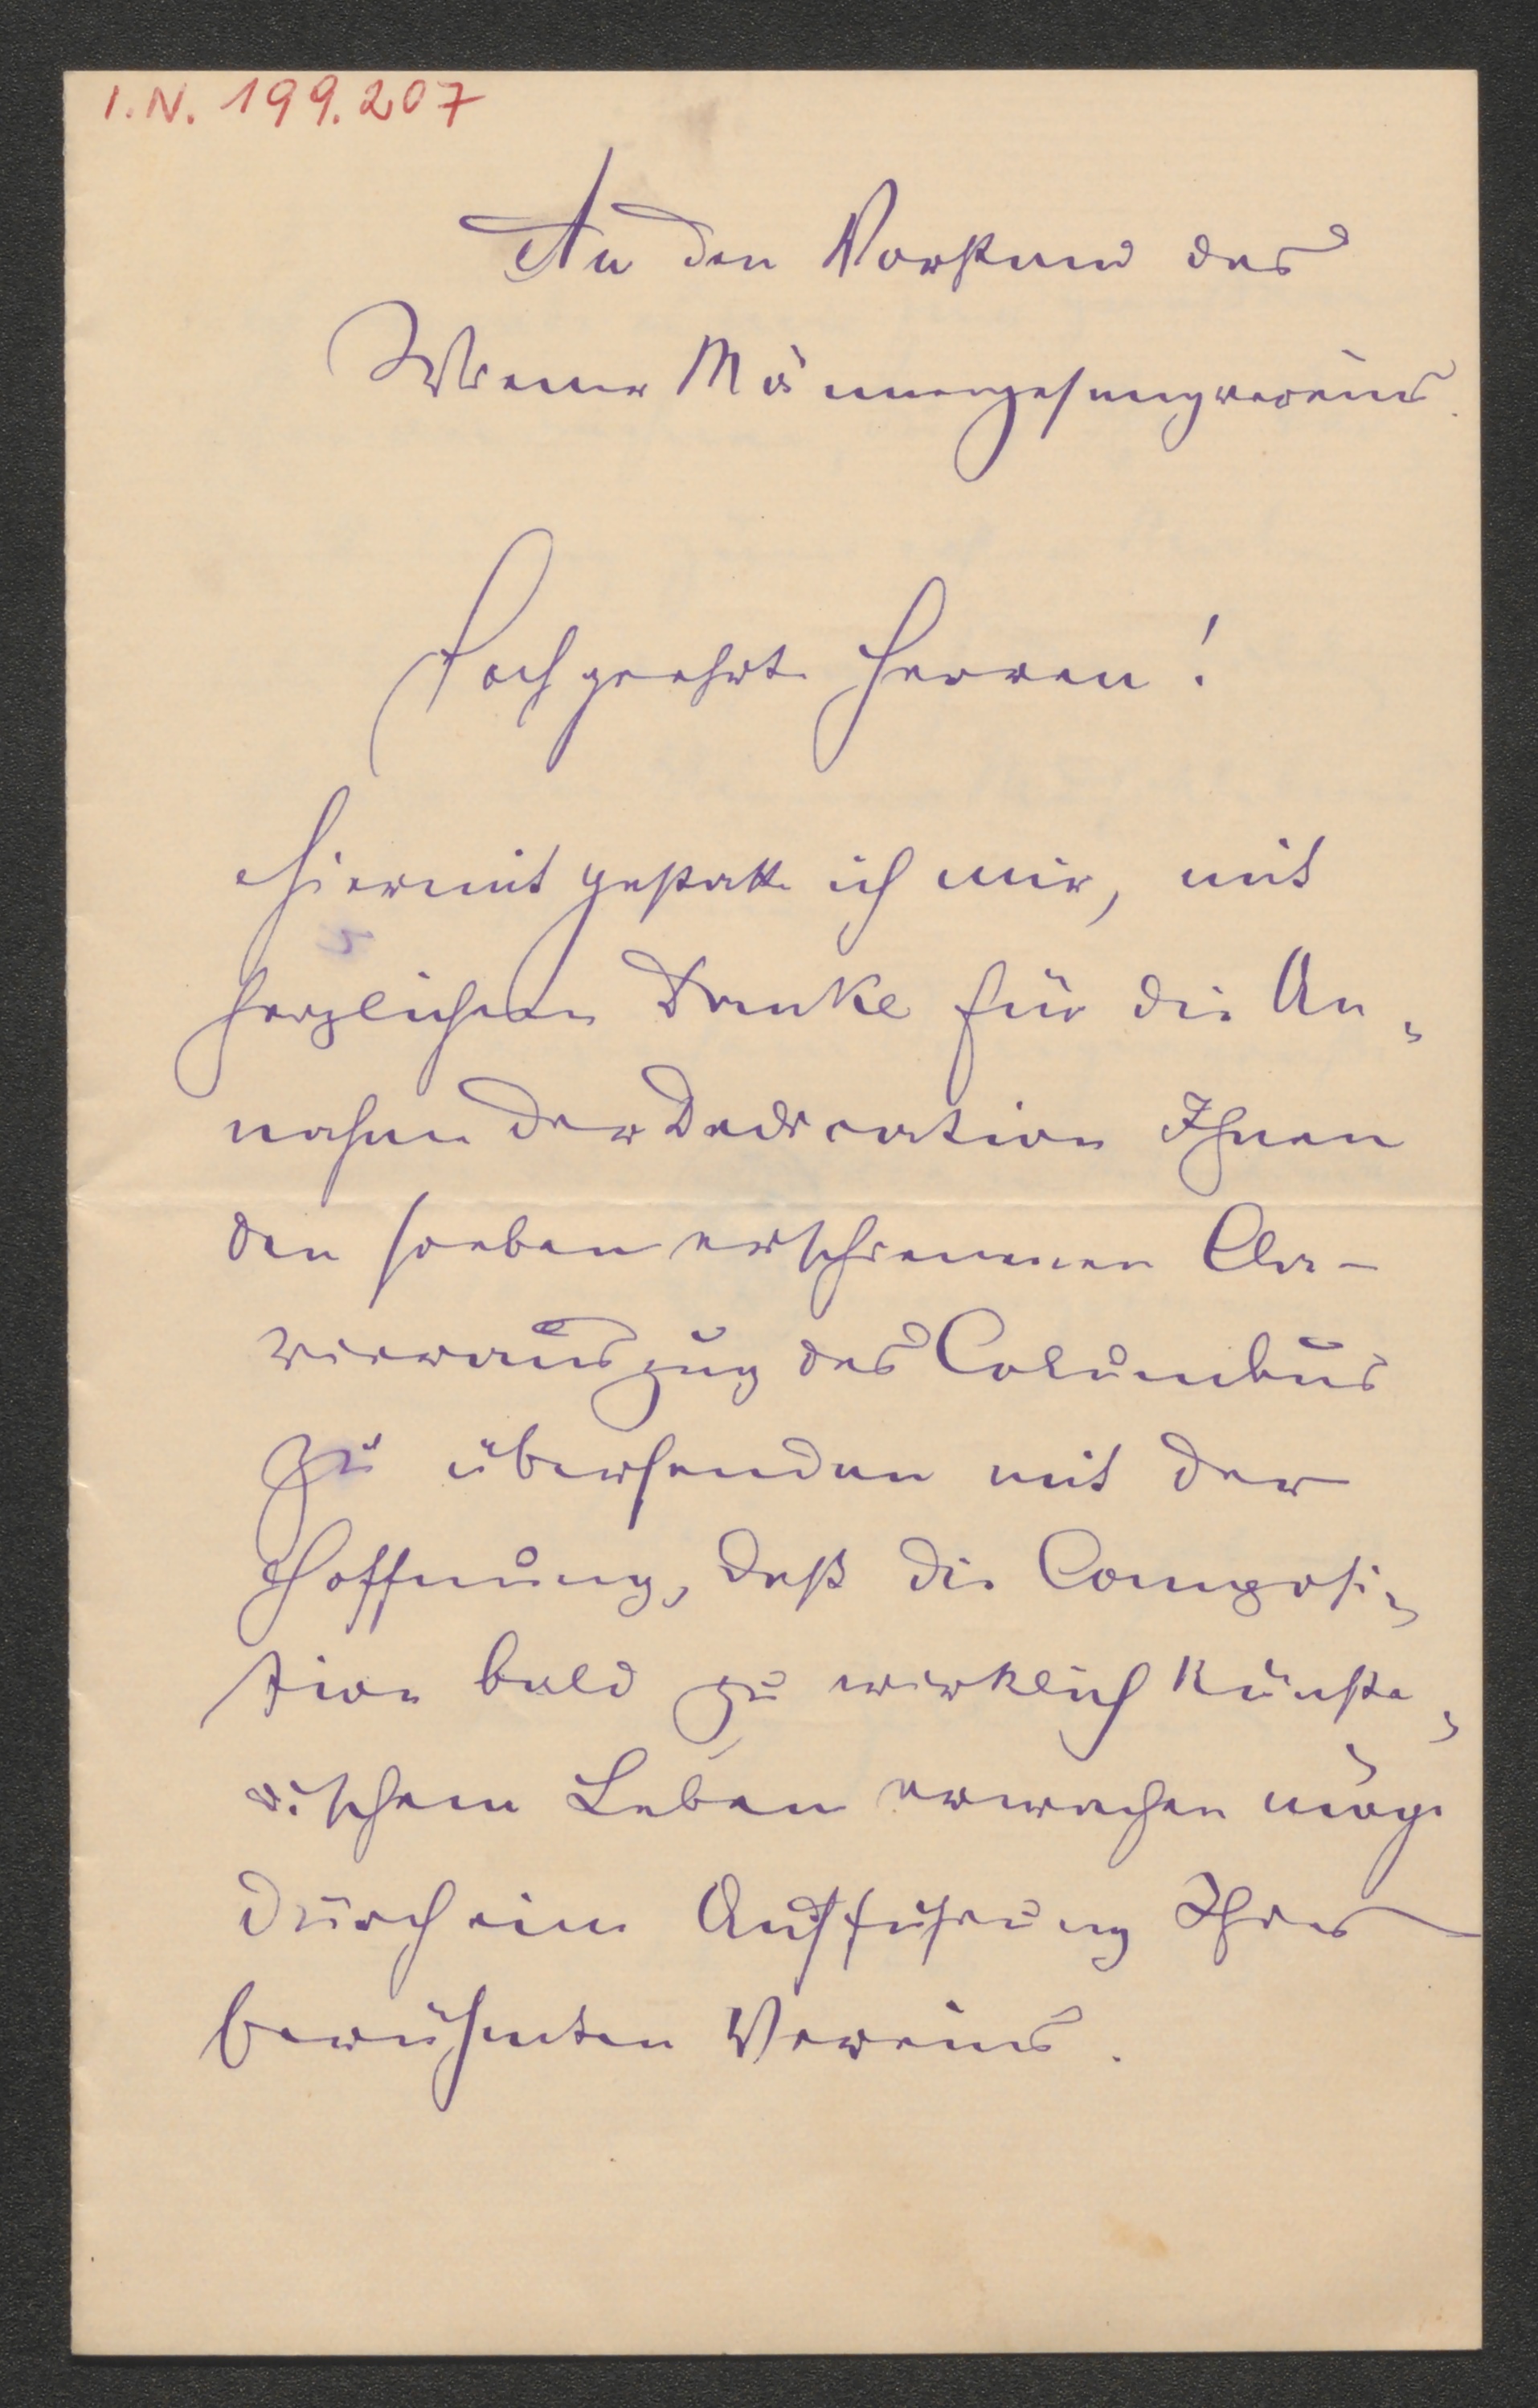 I.N. 199.207
An den Vorstand des
Wiener Männergesangvereins.
Hochgeehrte Herren!
Hiermit gestatte ich mir, mit
herzlichem Danke für die An-
nahme der Dedication Ihnen
den soeben erschienenen Cla-
vierauszug des Columbus
zu übersenden mit der
Hoffnung, daß die Composi-
tion bald zu wirklich künstle-
rischem Leben erwachen möge
durch eine Aufführung Ihres
berühmten Vereins.